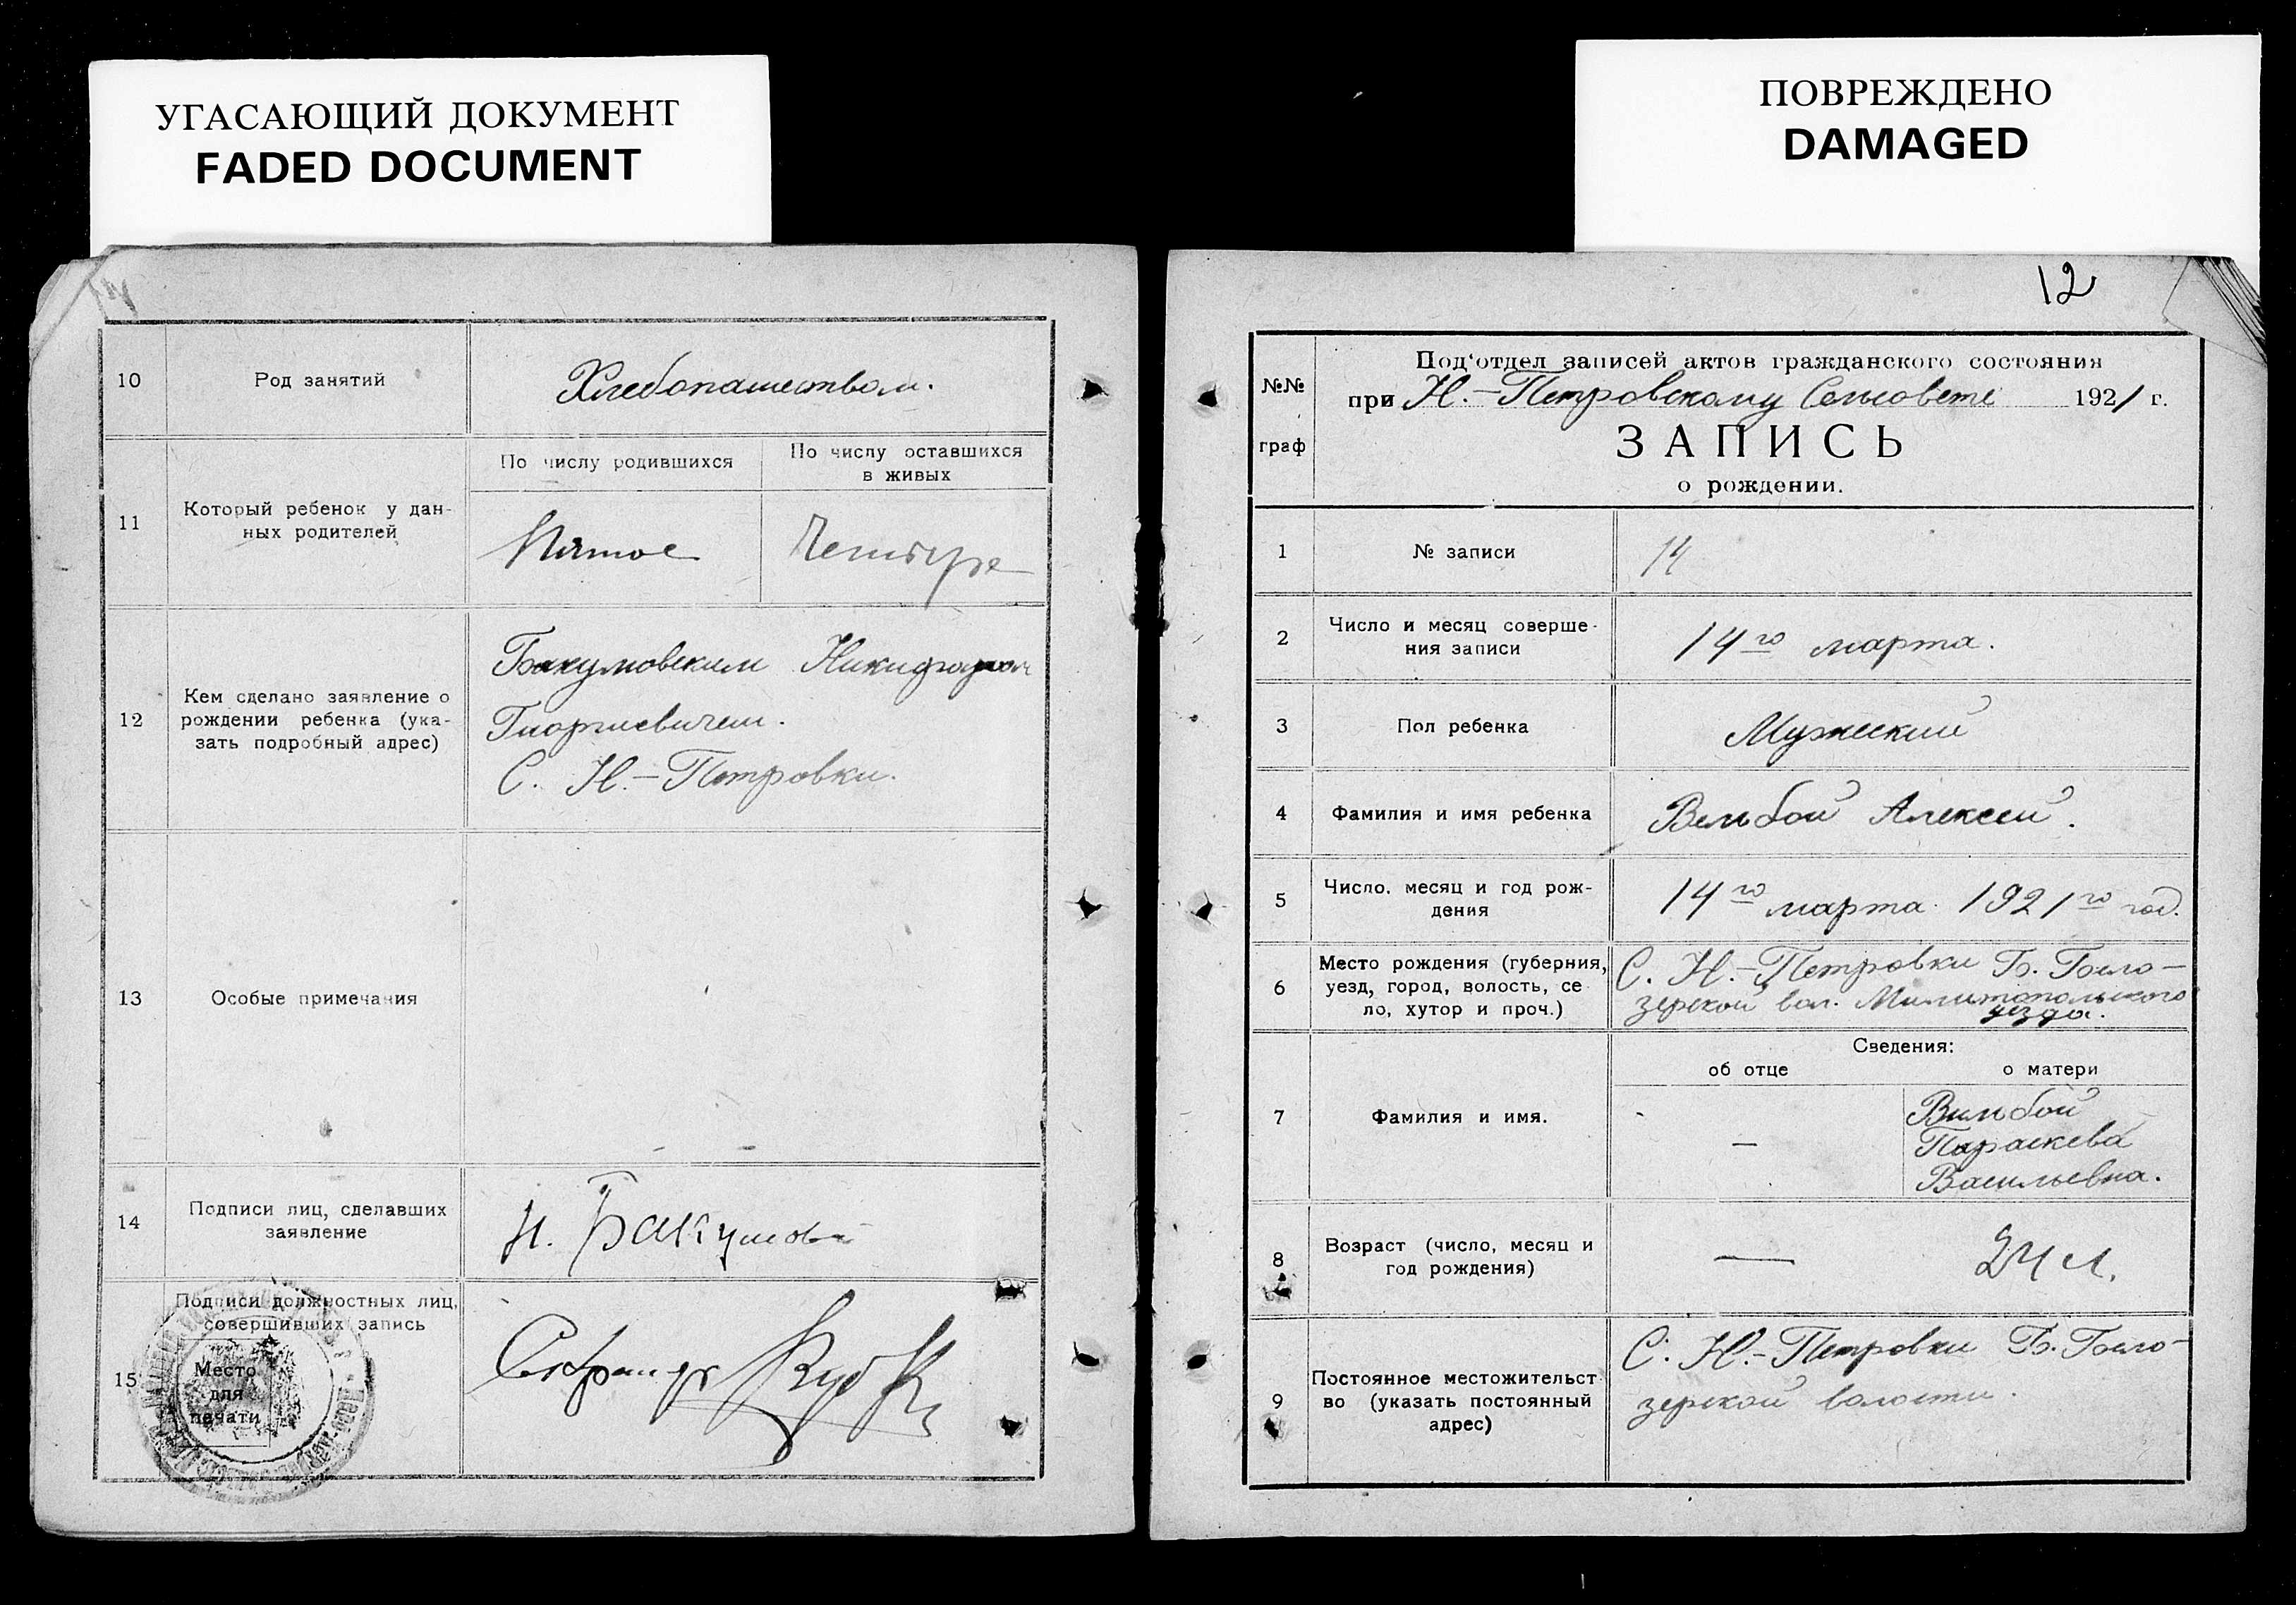 УГАСАЮЩИЙ ДОКУМЕНТ
FADED DOCUMENT
10
Род занятий
Хлебопашеством.
11
Который ребенок у дан-
ных родителей
По числу родившихся
По числу оставшихся
в живых
Пятое
Четыре
12
Кем сделано заявление о
рождении ребенка (ука-
зать подробный адрес)
Бакумовским Никифором
Гиоргиевичем.
С. Н.-Петровки.
13
Особые примечания
14
Подписи лиц, сделавших
заявление
Н. Бакумов
15
Подписи должностных лиц,
совершивших запись
Место
для
печати
ПОВРЕЖДЕНО
DAMAGED
12
№№
граф
Под'отдел записей актов гражданского состояния
при Н.-Петровскому Сельсовете 1921 г.
ЗАПИСЬ
о рождении.
1
№ записи
14
2
Число и месяц соверше-
ния записи
14го марта.
3
Пол ребенка
Мужеский
4
Фамилия и имя ребенка
Вельбой Алексей.
5
Число. месяц и год рож-
дения
14го марта 1921го год.
6
Место рождения (губерния,
уезд, город, волость, се
ло, хутор и проч.)
С. Н.-Петровки Б. Бело-
зерской вол. Милитопольского
уезда.
7
Фамилия и имя.
Сведения:
об отце
о матери
—
Вильбой
Параскева
Васильевна.
8
Возраст (число, месяц и
год рождения)
—
24 л.
9
Постоянное местожительст
во (указать постоянный
адрес)
С. Н.-Петровки Б. Бело-
зерской волости.